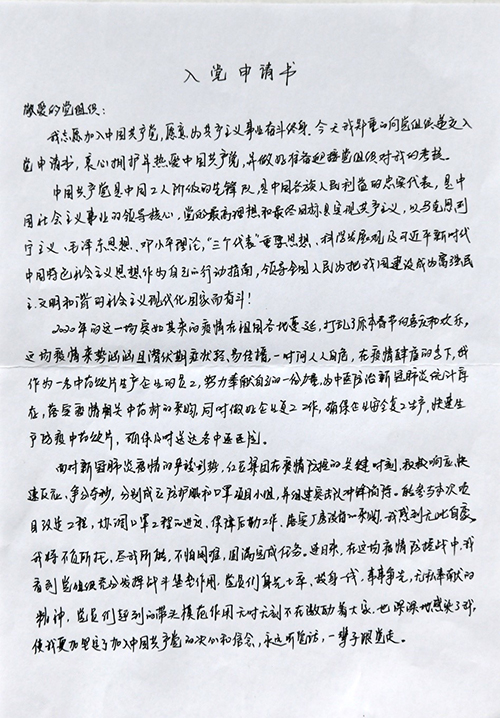 入党申请书
敬爱的党组织：
我志愿加入中国共产党，愿意为共产主义事业奋斗终身。今天我郑重的向党组织递交入
党申请书，衷心拥护并热爱中国共产党，并做好准备迎接党组织对我的考核。
中国共产党是中国工人阶级的先锋队，是中国各族人民利益的忠实代表，是中
国社会主义事业的领导核心，党的最高理想和最终目标是实现共产主义，以马克思列
宁主义、毛泽东思想、邓小平理论，“三个代表”重要思想、科学发展观及习近平新时代
中国特色社会主义思想作为自己的行动指南，领导全国人民为把我国建设成为富强民
主文明和谐的社会主义现代化国家而奋斗！
2020年的这一场突如其来的疫情在祖国各地蔓延，打乱了原本春节的喜乐和欢乐，
这场疫情来势汹汹且潜伏期症状轻，易传播，一时间人人自危，在疫情肆虐的当下，我
作为一名中药饮片生产企业的员工，努力奉献自己的一份力量，为中医防治新冠肺炎
存，落实疫情相关中药材的采购，同时做好企业复工工作，确保企业安全复工生产，快速生
产防疫中药饮片，确保及时送达各中医医院。
面对新冠肺炎疫情的严峻形势，红豆集团在疫情防控的关键时刻，积极响应，快
速反应、争分夺秒，分别成立防护服和口罩项目小组，并组建突击队冲锋陷阵。能参与本次项
目改造工程，协调口罩工程的进度、保障后勤工作、落实厂房设备的采购，我感到无比自豪。
我将不负所托、尽我所能，不怕困难，圆满完成任务。连日来，在这场疫情防控战中，我
看到党组织充分发挥战斗堡垒作用，党员们身先士卒、投身一线，事事争先，无私奉献的
精神，党员们起到的带头模范作用无时无刻不在激励着大家，也深深地感染了我，
使我更加坚定了加入中国共产党的决心和信念，永远听党话，一辈子跟党走。